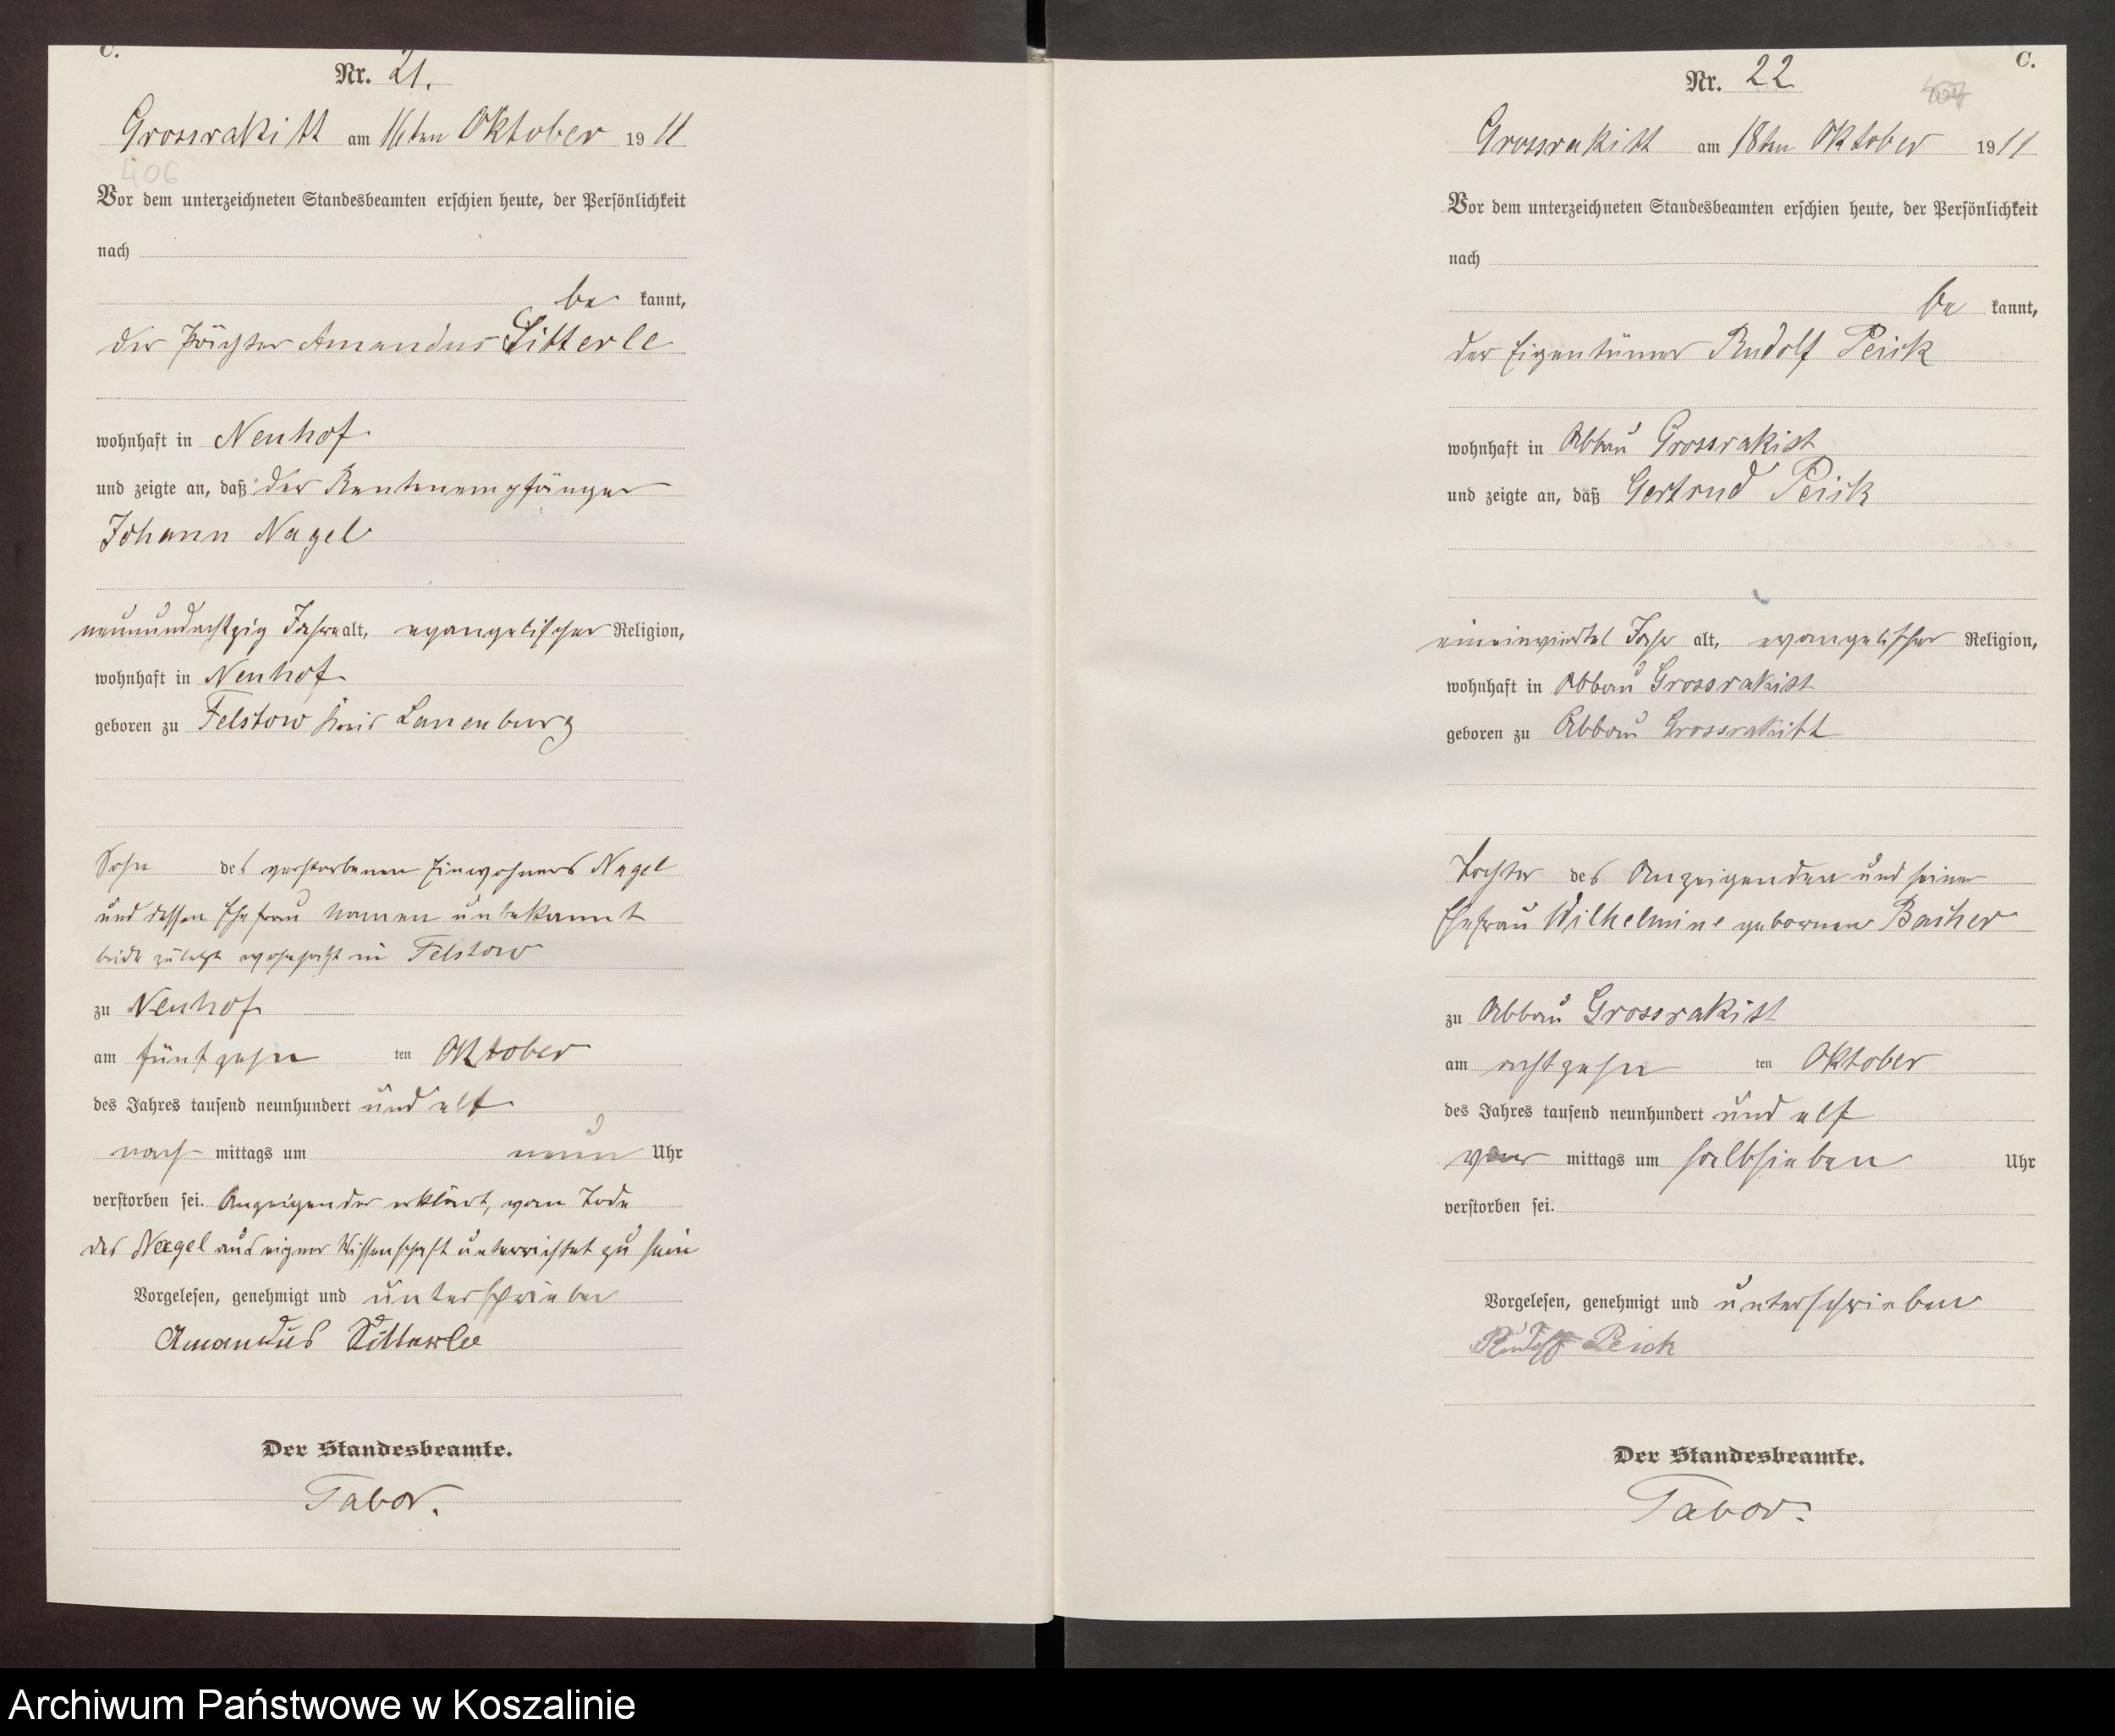 C.
Nr. 21.
Grossrakitt am 16ten Oktober 1911
406
Vor dem unterzeichneten Standesbeamten erschien heute, der Persönlichkeit
nach
be kannt,
der Pächter Amandus Sitterle
wohnhaft in Neuhof
und zeigte an, daß der Rentenempfänger
Johann Nagel
neunundachtzig Jahre alt, evangelischer Religion,
wohnhaft in Neuhof
geboren zu Felstow Kreis Lauenburg
Sohn des verstorbenen Einwohners Nagel
und dessen Ehefrau Namen unbekannt
beide zuletzt wohnhaft in Felstow
zu Neuhof
am fünfzehn ten Oktober
des Jahres tausend neunhundert und elf
nach mittags um neun Uhr
verstorben sei. Anzeigender erklärt, vom Tode
des Nagel aus eigner Wissenschaft unterrichtet zu sein
Vorgelesen, genehmigt und unterschrieben
Amandus Sitterle
Der Standesbeamte.
Tabor.
C.
Nr. 22
Grossrakitt am 18ten Oktober 1911
Vor dem unterzeichneten Standesbeamten erschien heute, der Persönlichkeit
nach
be kannt,
der Eigentümer Rudolf Peick
wohnhaft in Abbau Grossrakitt
und zeigte an, daß Gertrud Peick
eineinviertel Jahr alt, evangelischer Religion,
wohnhaft in Abbau Grossrakitt
geboren zu Abbau Grossrakitt
Tochter des Anzeigenden und seiner
Ehefrau Wilhelmine gebornen
zu Abbau Grossrakitt
am achtzehn ten Oktober
des Jahres tausend neunhundert und elf
vor mittags um halbsieben Uhr
verstorben sei.
Vorgelesen, genehmigt und unterschrieben
Rudolf Peick
Der Standesbeamte.
Tabor.
Archiwum Państwowe w Koszalinie